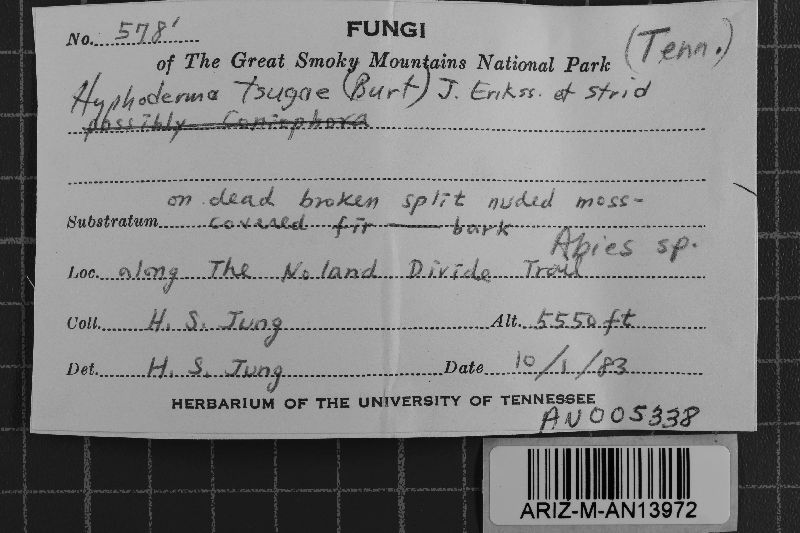 No. 578'
FUNGI
of The Great Smoky Mountains National Park (Tenn.)
Hyphoderma tsugae (Burt) J. Erikss. et Strid
possibly Coniophora
on dead broken split nuded moss-
Substratum covered fir — bark
Abies sp.
Loc. along The Noland Divide Trail
Coll. H. S. Jung Alt. 5550 ft
Det. H. S. Jung Date 10/1/83
HERBARIUM OF THE UNIVERSITY OF TENNESSEE
AN005338
ARIZ-M-AN13972